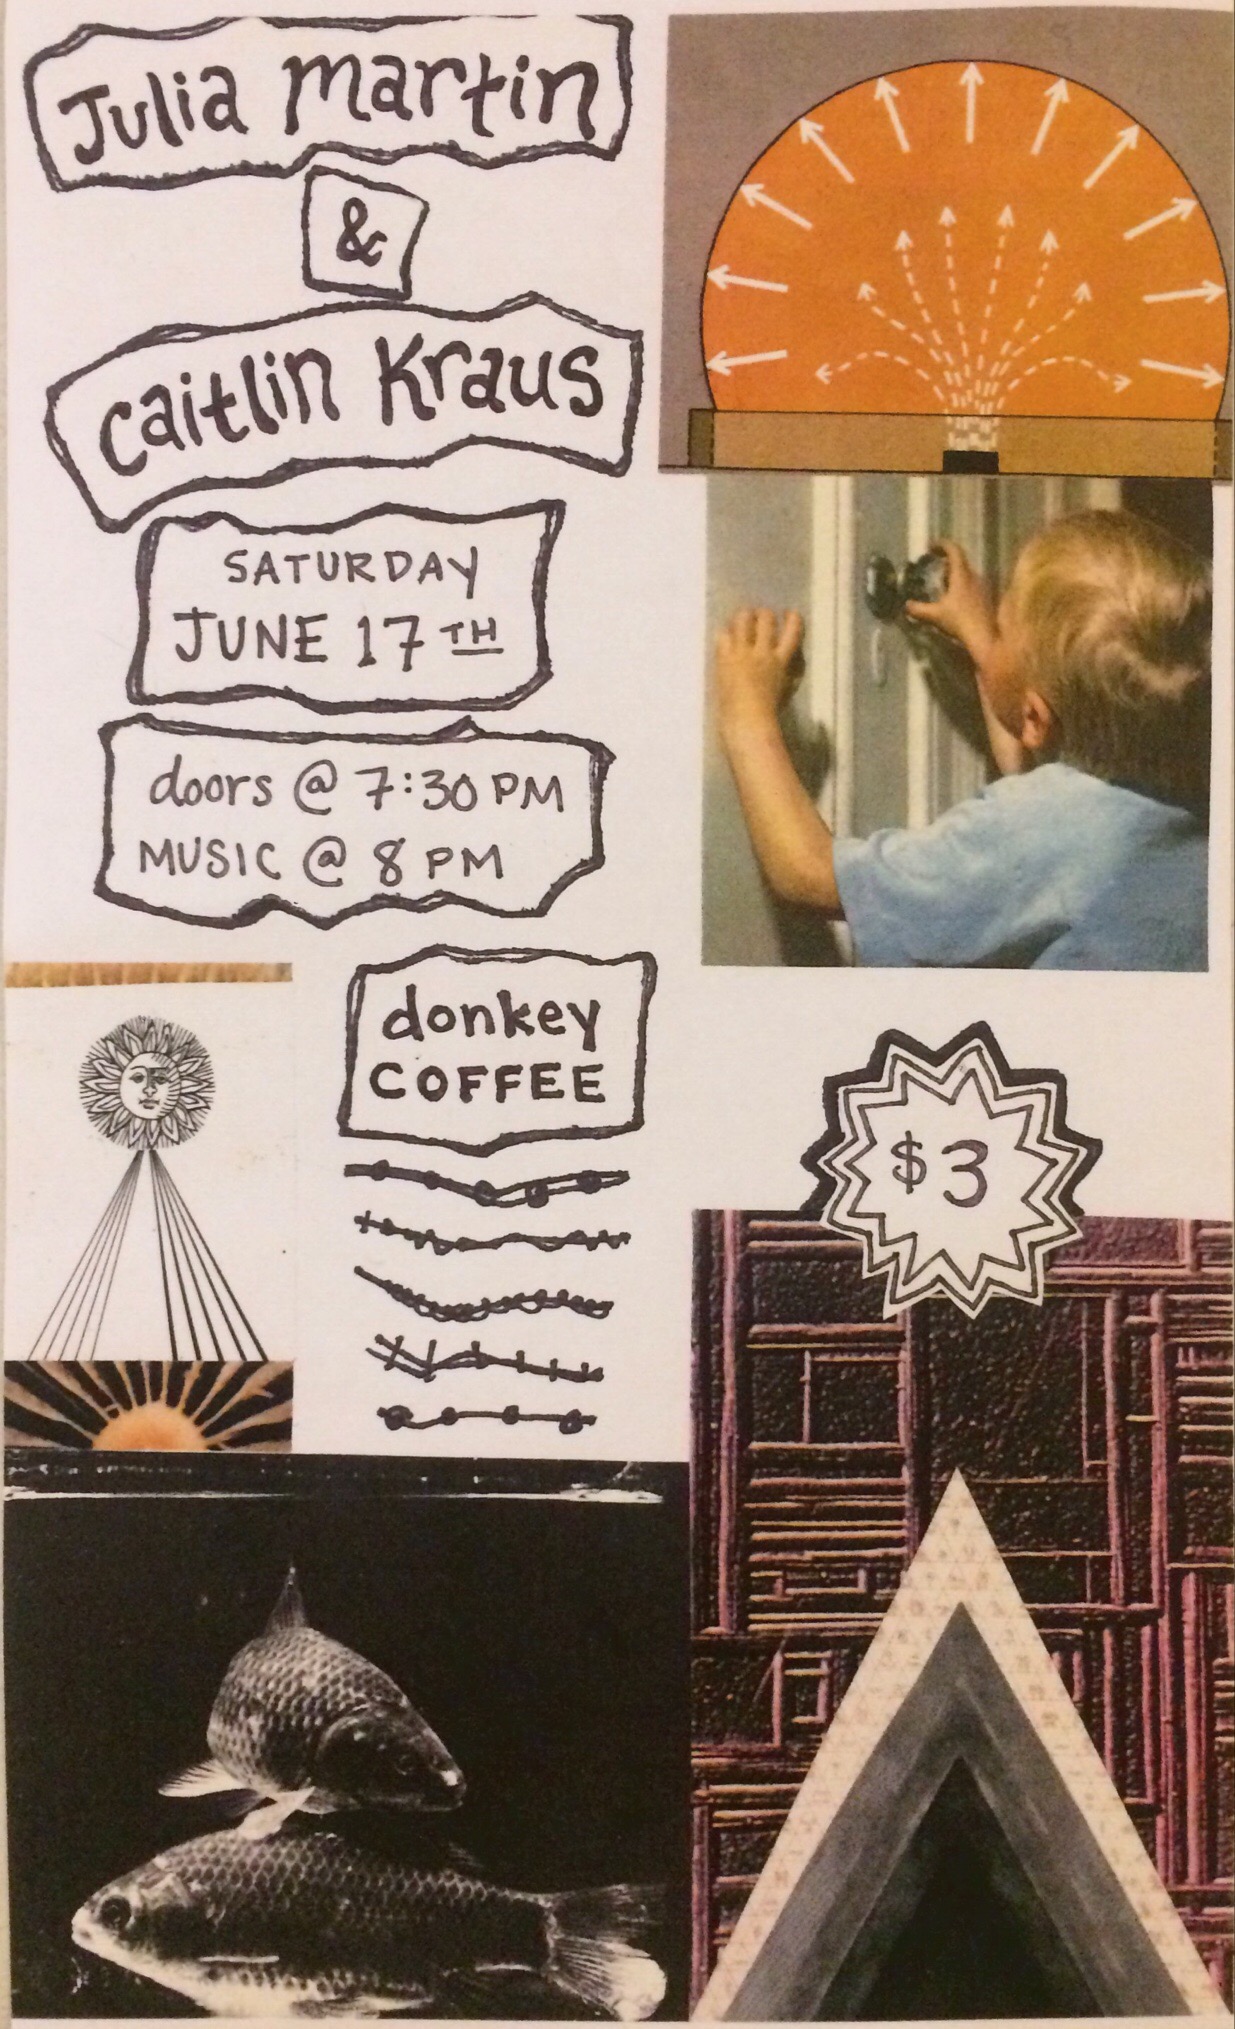 Julia Martin
&
Caitlin Kraus
SATURDAY
JUNE 17TH
doors @ 7:30 PM
MUSIC @ 8 PM
donkey
COFFEE
$3